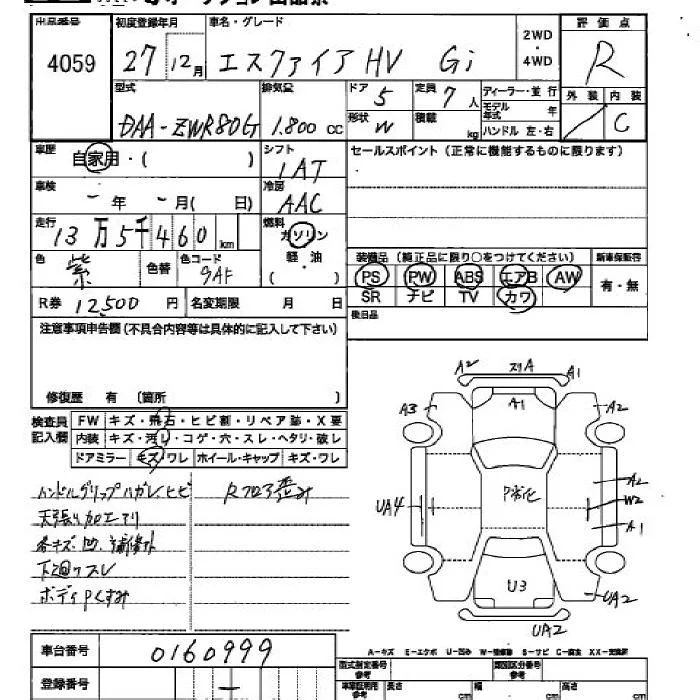 出品番号 初度登録年月 車名・グレード 2WD・4WD 評価点
4059 27 12月 エスクァイア HV Gi R
型式 排気量 ドア 5 定員 7人 ディーラー・並行 外装 内装
モデル年式 年
DAA-ZWR80G 1.800 CC 形状 W 積載 kg ハンドル 左・右 C
車歴 自家用・( ) シフト セールスポイント(正常に機能するものに限ります)
IAT
車検 - 年 - 月( 日) 冷房
AAC
走行 13万5千460 km 燃料 ガソリン
軽・油
( )
色 紫 色替 色コード 9AF
装備品(純正品に限り○をつけてください) 新車保証書
PS PW ABS エアB AW 有・無
SR ナビ TV カワ
R券 12,500 円 名変期限 月 日 後日品
注意事項申告欄(不具合内容等は具体的に記入して下さい)
修復歴 有 (箇所 )
検査員記入欄 FW キズ・飛石・ヒビ割・リペア跡・X要
内装 キズ・汚レ・コゲ・穴・スレ・ヘタリ・破レ
ドアミラー キズ・ワレ ホイール・キャップ キズ・ワレ
ハンドルグリップハガレ、ヒビ Rフロア歪み
天張り加工アリ
各キズ、凹、補修跡
下廻りスレ
ボディPくすみ
A2 スリA A1
A3 A1 A2
UA4 P劣化 A2
W2
A1
U3 UA2
UA2
A-キズ E-エクボ U-凹み W-補修跡 S-サビ C-腐食 XX-交換済
車台番号 0160999
型式指定番号 参考 類別区分番号 参考
登録番号 -
車庫証明用 参考 長さ cm 幅 cm 高さ cm